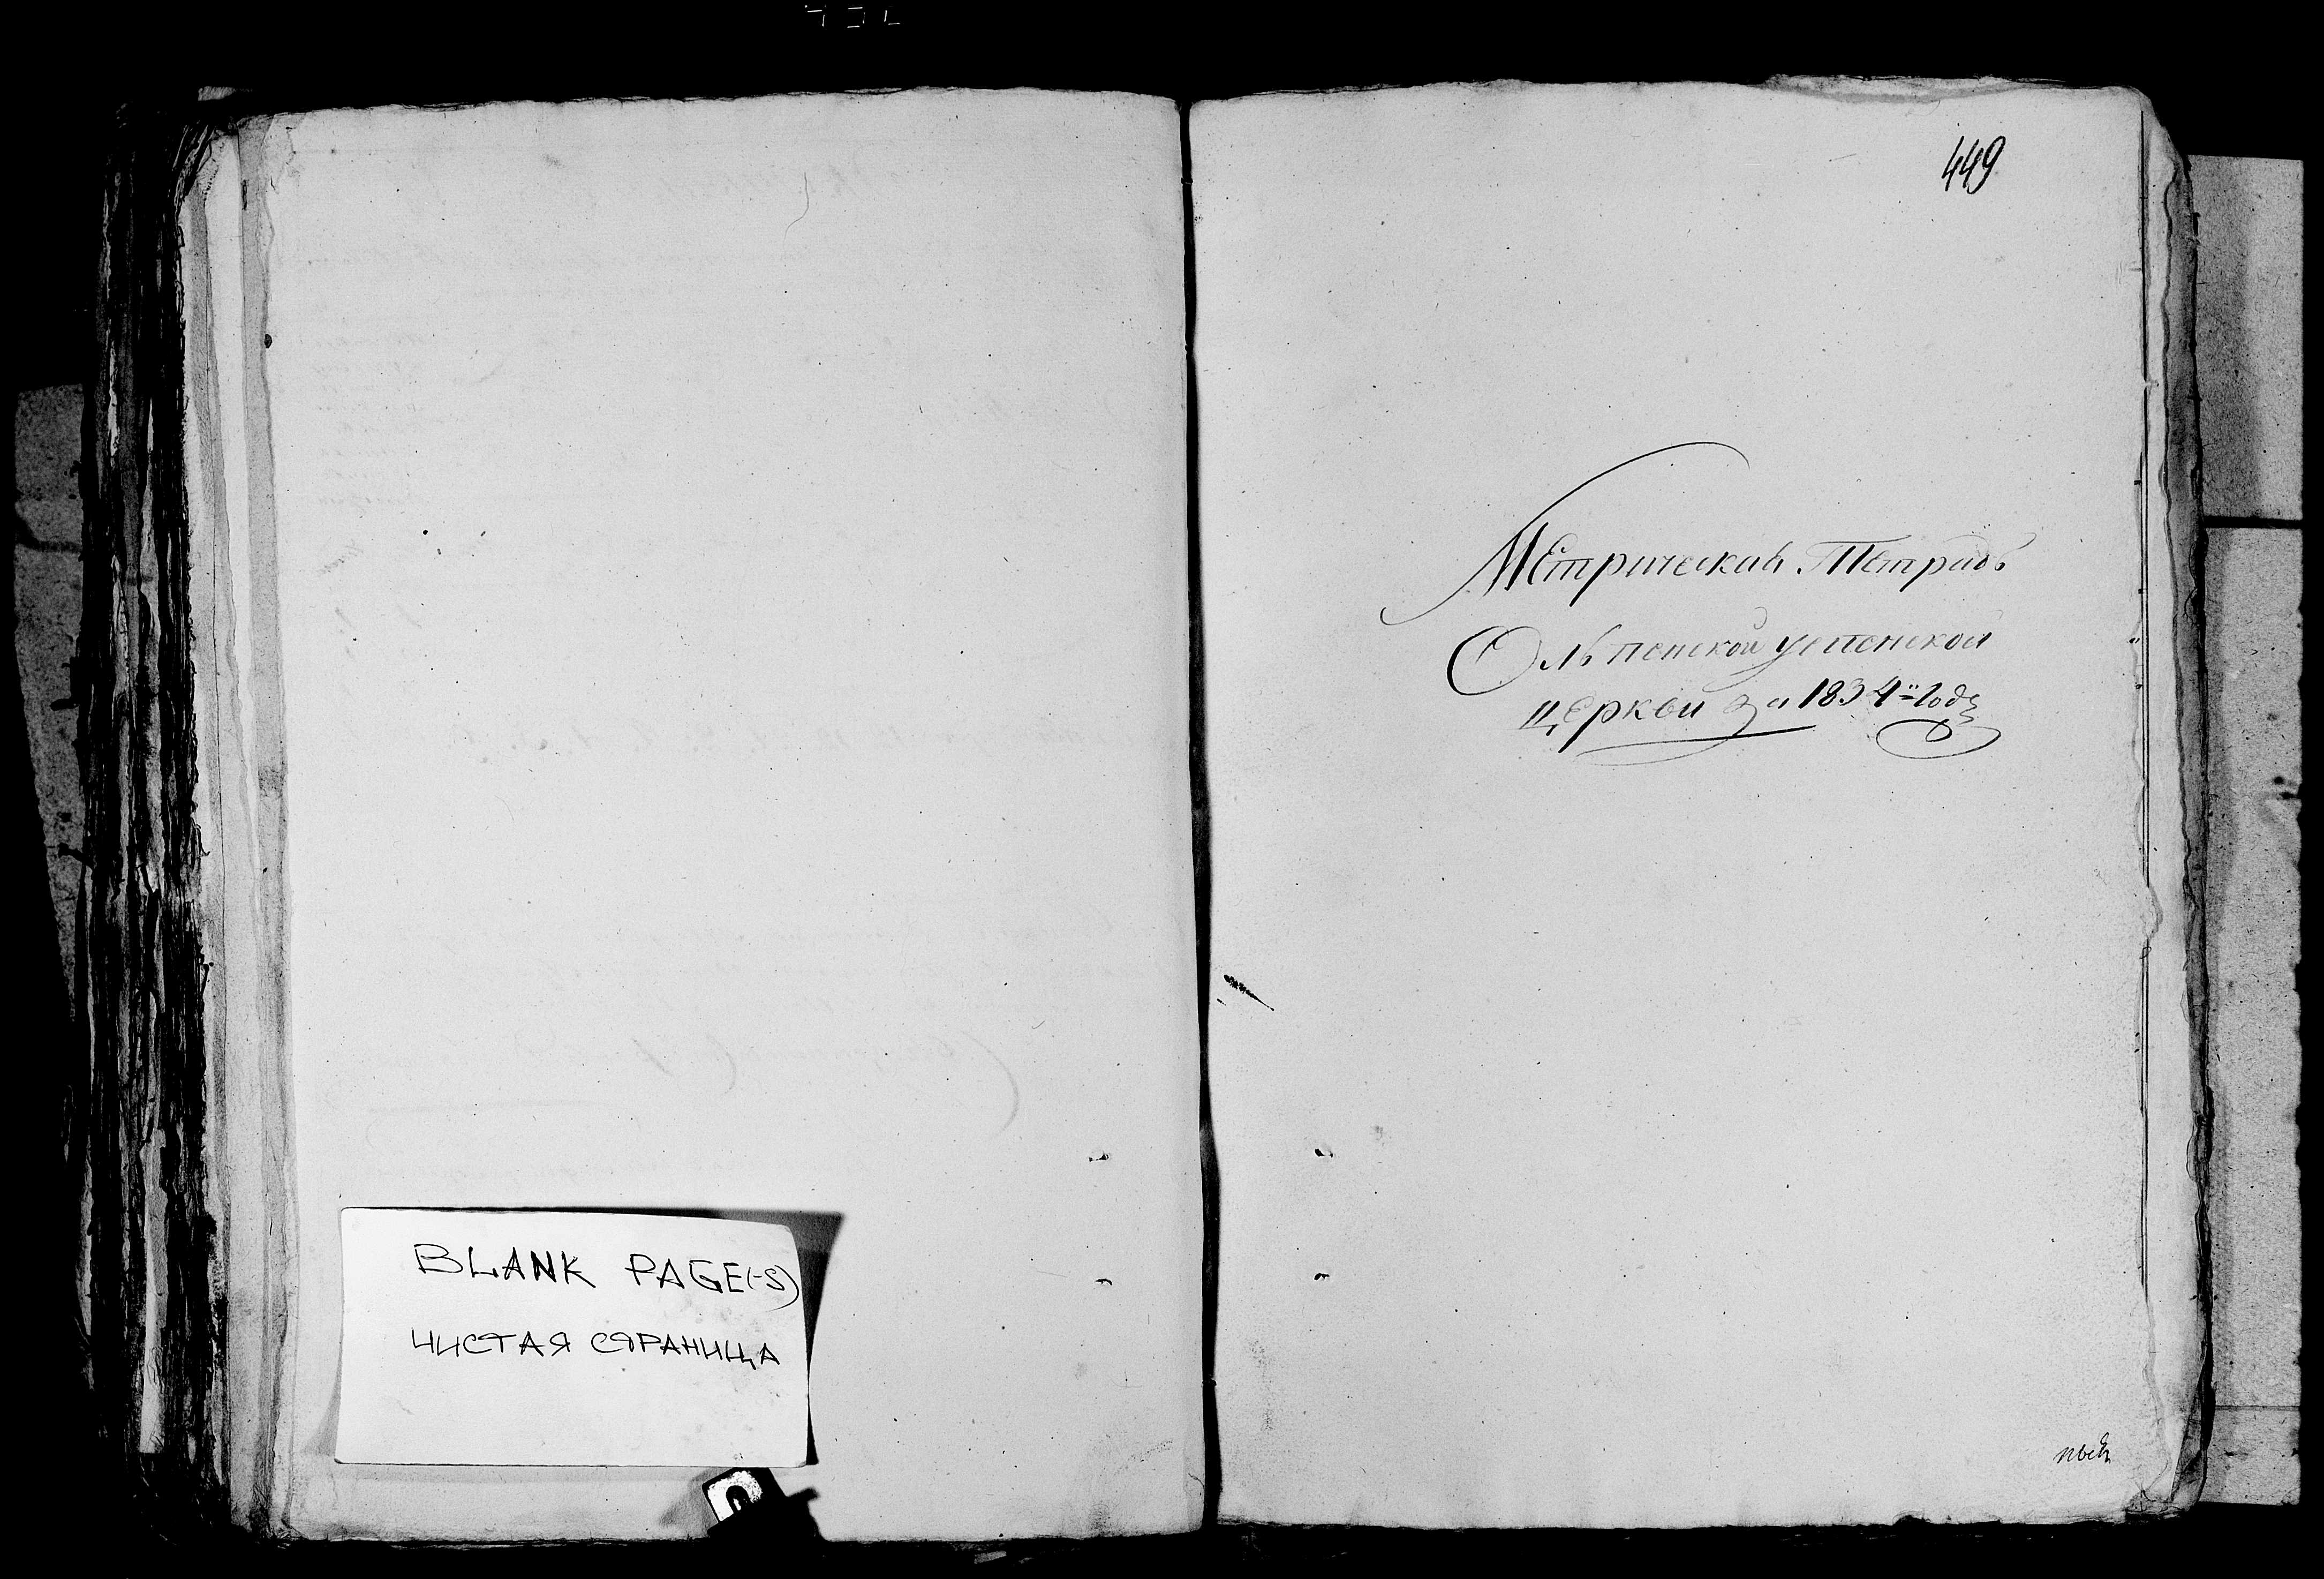 BLANK PAGE(-S)
ЧИСТАЯ СТРАНИЦА
449
Метрическая Тетрадь
Ольпенской успенской
церкви за 1834й годъ